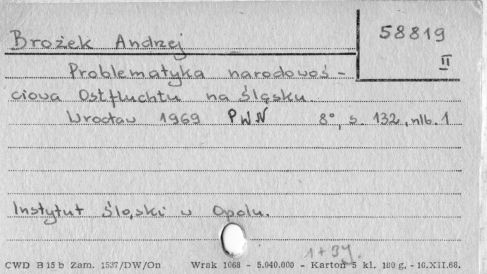 58819
II
Brożek Andrzej
Problematyka narodowoś-
ciowa Ostfluchtu na Śląsku.
Wrocław 1969 PWN 8°, s. 132, nlb. 1
Instytut Śląski w Opolu.
1+9j.
CWD B 15 b Zam. 1537/DW/On Wrak 1068 - 5.040.000 - Karton 5 kl. 180 g, - 16.XII.68.